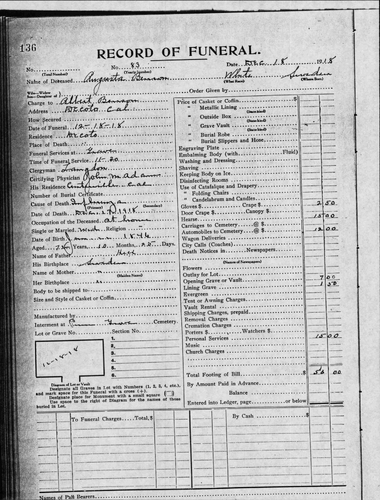 136
RECORD OF FUNERAL.
No. (Total Number) No. 83 (Yearly Number) Date Dec 18 1918
Name of Deceased Augusta Benson White (What Race) Sweden (Where Born)
Charge to Albert Benson Order Given by
Address Decoto Cal
How Secured
Date of Funeral 12-18-18
Residence Decoto
Place of Death
Funeral Services at Grave
Time of Funeral Service 11-20
Clergyman
Certifying Physician
His Residence Centerville Cal
Number of Burial Certificate
Cause of Death Influenza
Date of Death Dec. 17 1918
Occupation of the Deceased at home
Single or Married Wid. Religion
Date of Birth 1846
Aged 72 Years, 10 Months, Days
Name of Father
His Birthplace Sweden
Name of Mother
Her Birthplace
Body to be shipped to
Size and Style of Casket or Coffin
Manufactured by
Interment at Grove Cemetery
Lot or Grave No. Section No.
1.
2.
3.
4.
5.
6.
12-18-18
Diagram of Lot or Vault
Designate all Graves in Lot with Numbers (1, 2, 3, 4, etc.), and mark space for this Funeral with a cross (+).
Designate place for Monument with a small square
Use space to the right of Diagram for the names of those buried in Lot.
Price of Casket or Coffin
" Metallic Lining
" Outside Box
" Grave Vault
" Burial Robe
" Burial Slippers and Hose
Engraving Plate
Embalming Body (with Fluid)
Washing and Dressing
Shaving
Keeping Body on Ice
Disinfecting Rooms
Use of Catafalque and Drapery
" Folding Chairs
" Candelabrum and Candles
Gloves $ 2 50
Door Crape $ Canopy $
Hearse 15 00
Carriages to Cemetery @ $
Automobiles to Cemetery @ $ 12 00
Wagon Deliveries
City Calls (Coaches)
Death Notices in Newspapers
Flowers
Outlay for Lot
Opening Grave or Vault 7 00
Lining Grave 1 50
Evergreen
Tent or Awning Charges
Vault Rental
Shipping Charges, prepaid
Removal Charges
Cremation Charges
Porters $ Watchers $
Personal Services 15 00
Music
Church Charges
Total Footing of Bill $
By Amount Paid in Advance
Balance $
Entered into Ledger, page or below
To Funeral Charges Total, $ By Cash $
Names of Pall Bearers